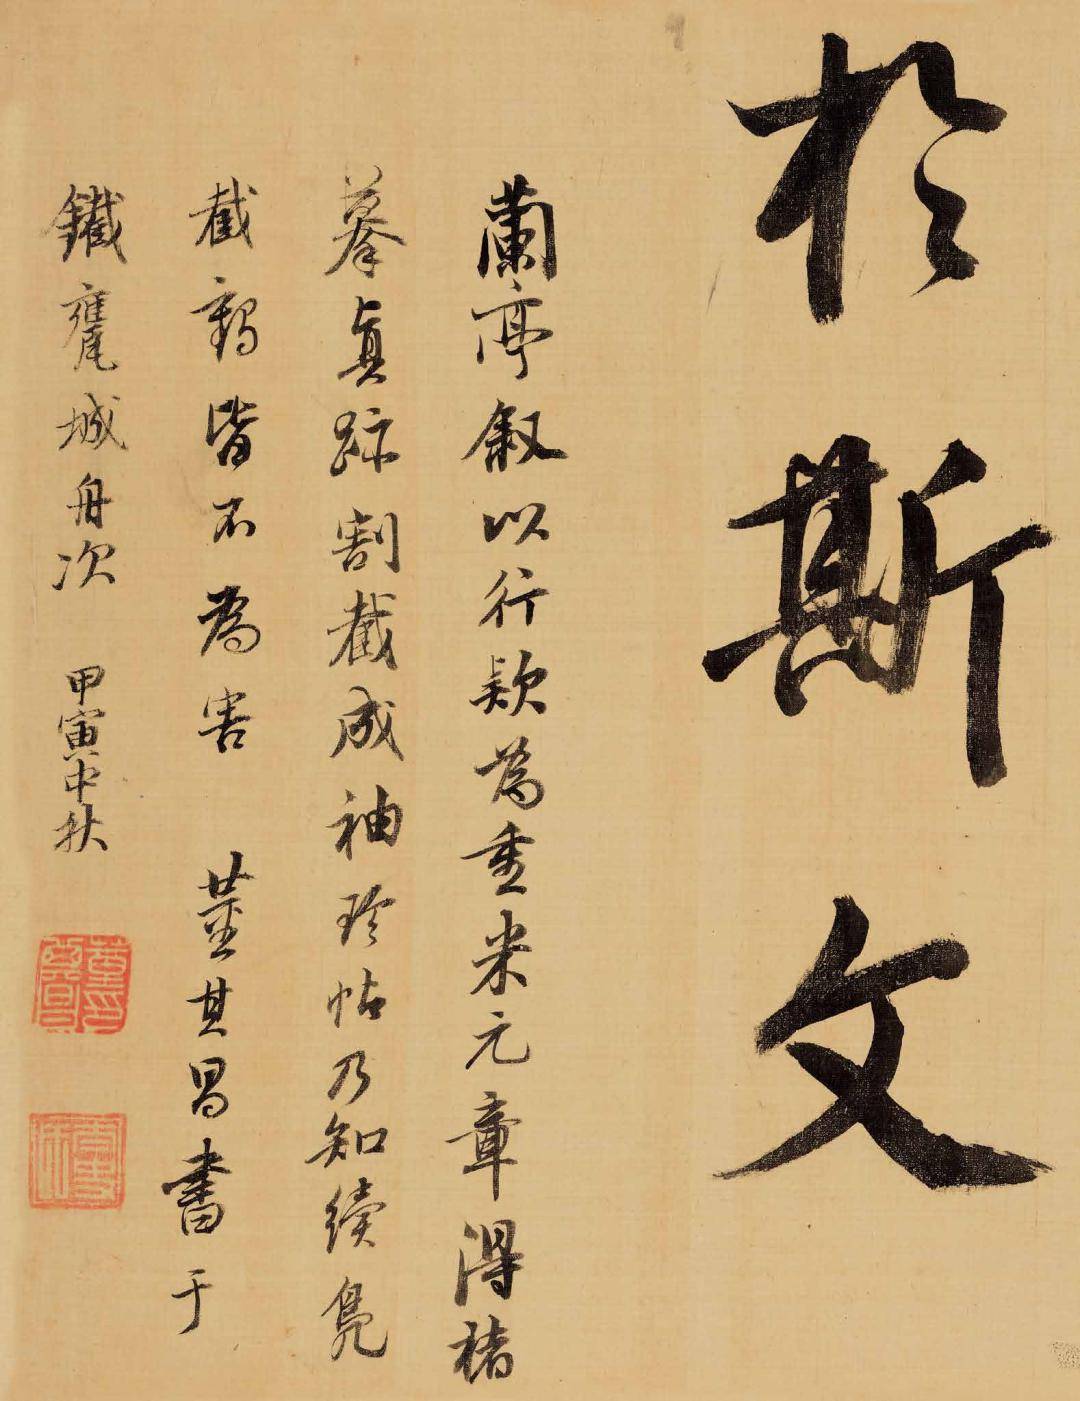 於斯文
蘭亭叙以行款為重米元章得褚
摹真跡割截成袖珍帖乃知續鳧
截鶴皆不為害 董其昌書于
鐵甕城舟次 甲寅中秋